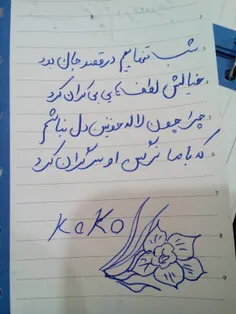 شب تنهاییم در قصد جان بود
خیالش لطف‌های بی‌کران کرد
چرا چون لاله خونین دل نباشم
که با ما نرگس او سرگران کرد
KoKo